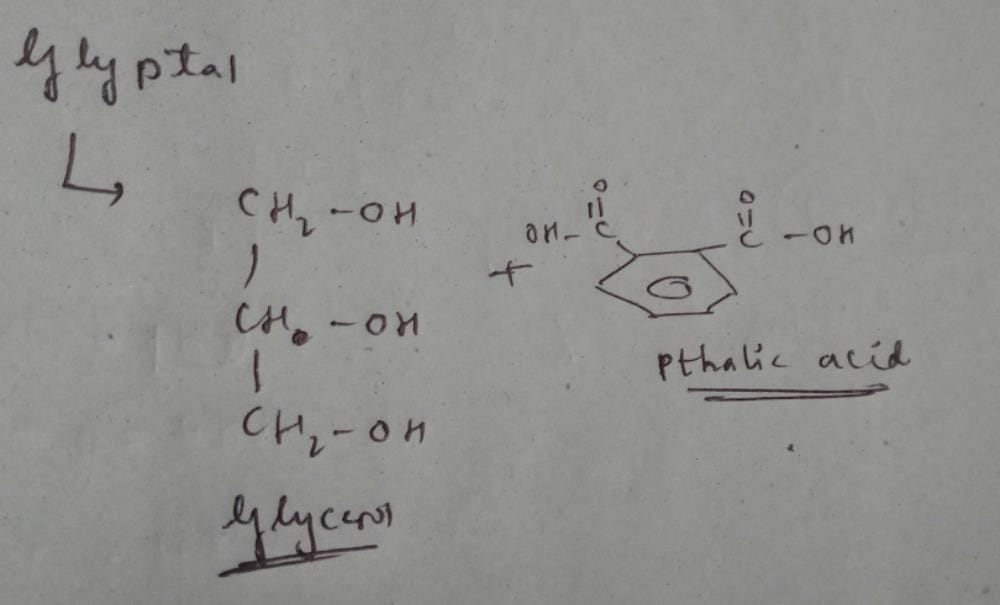 Glyptal
CH2 - OH
CH - OH
CH2 - OH
Glycerol
+
O
||
OH - C
O
||
C - OH
Pthalic acid